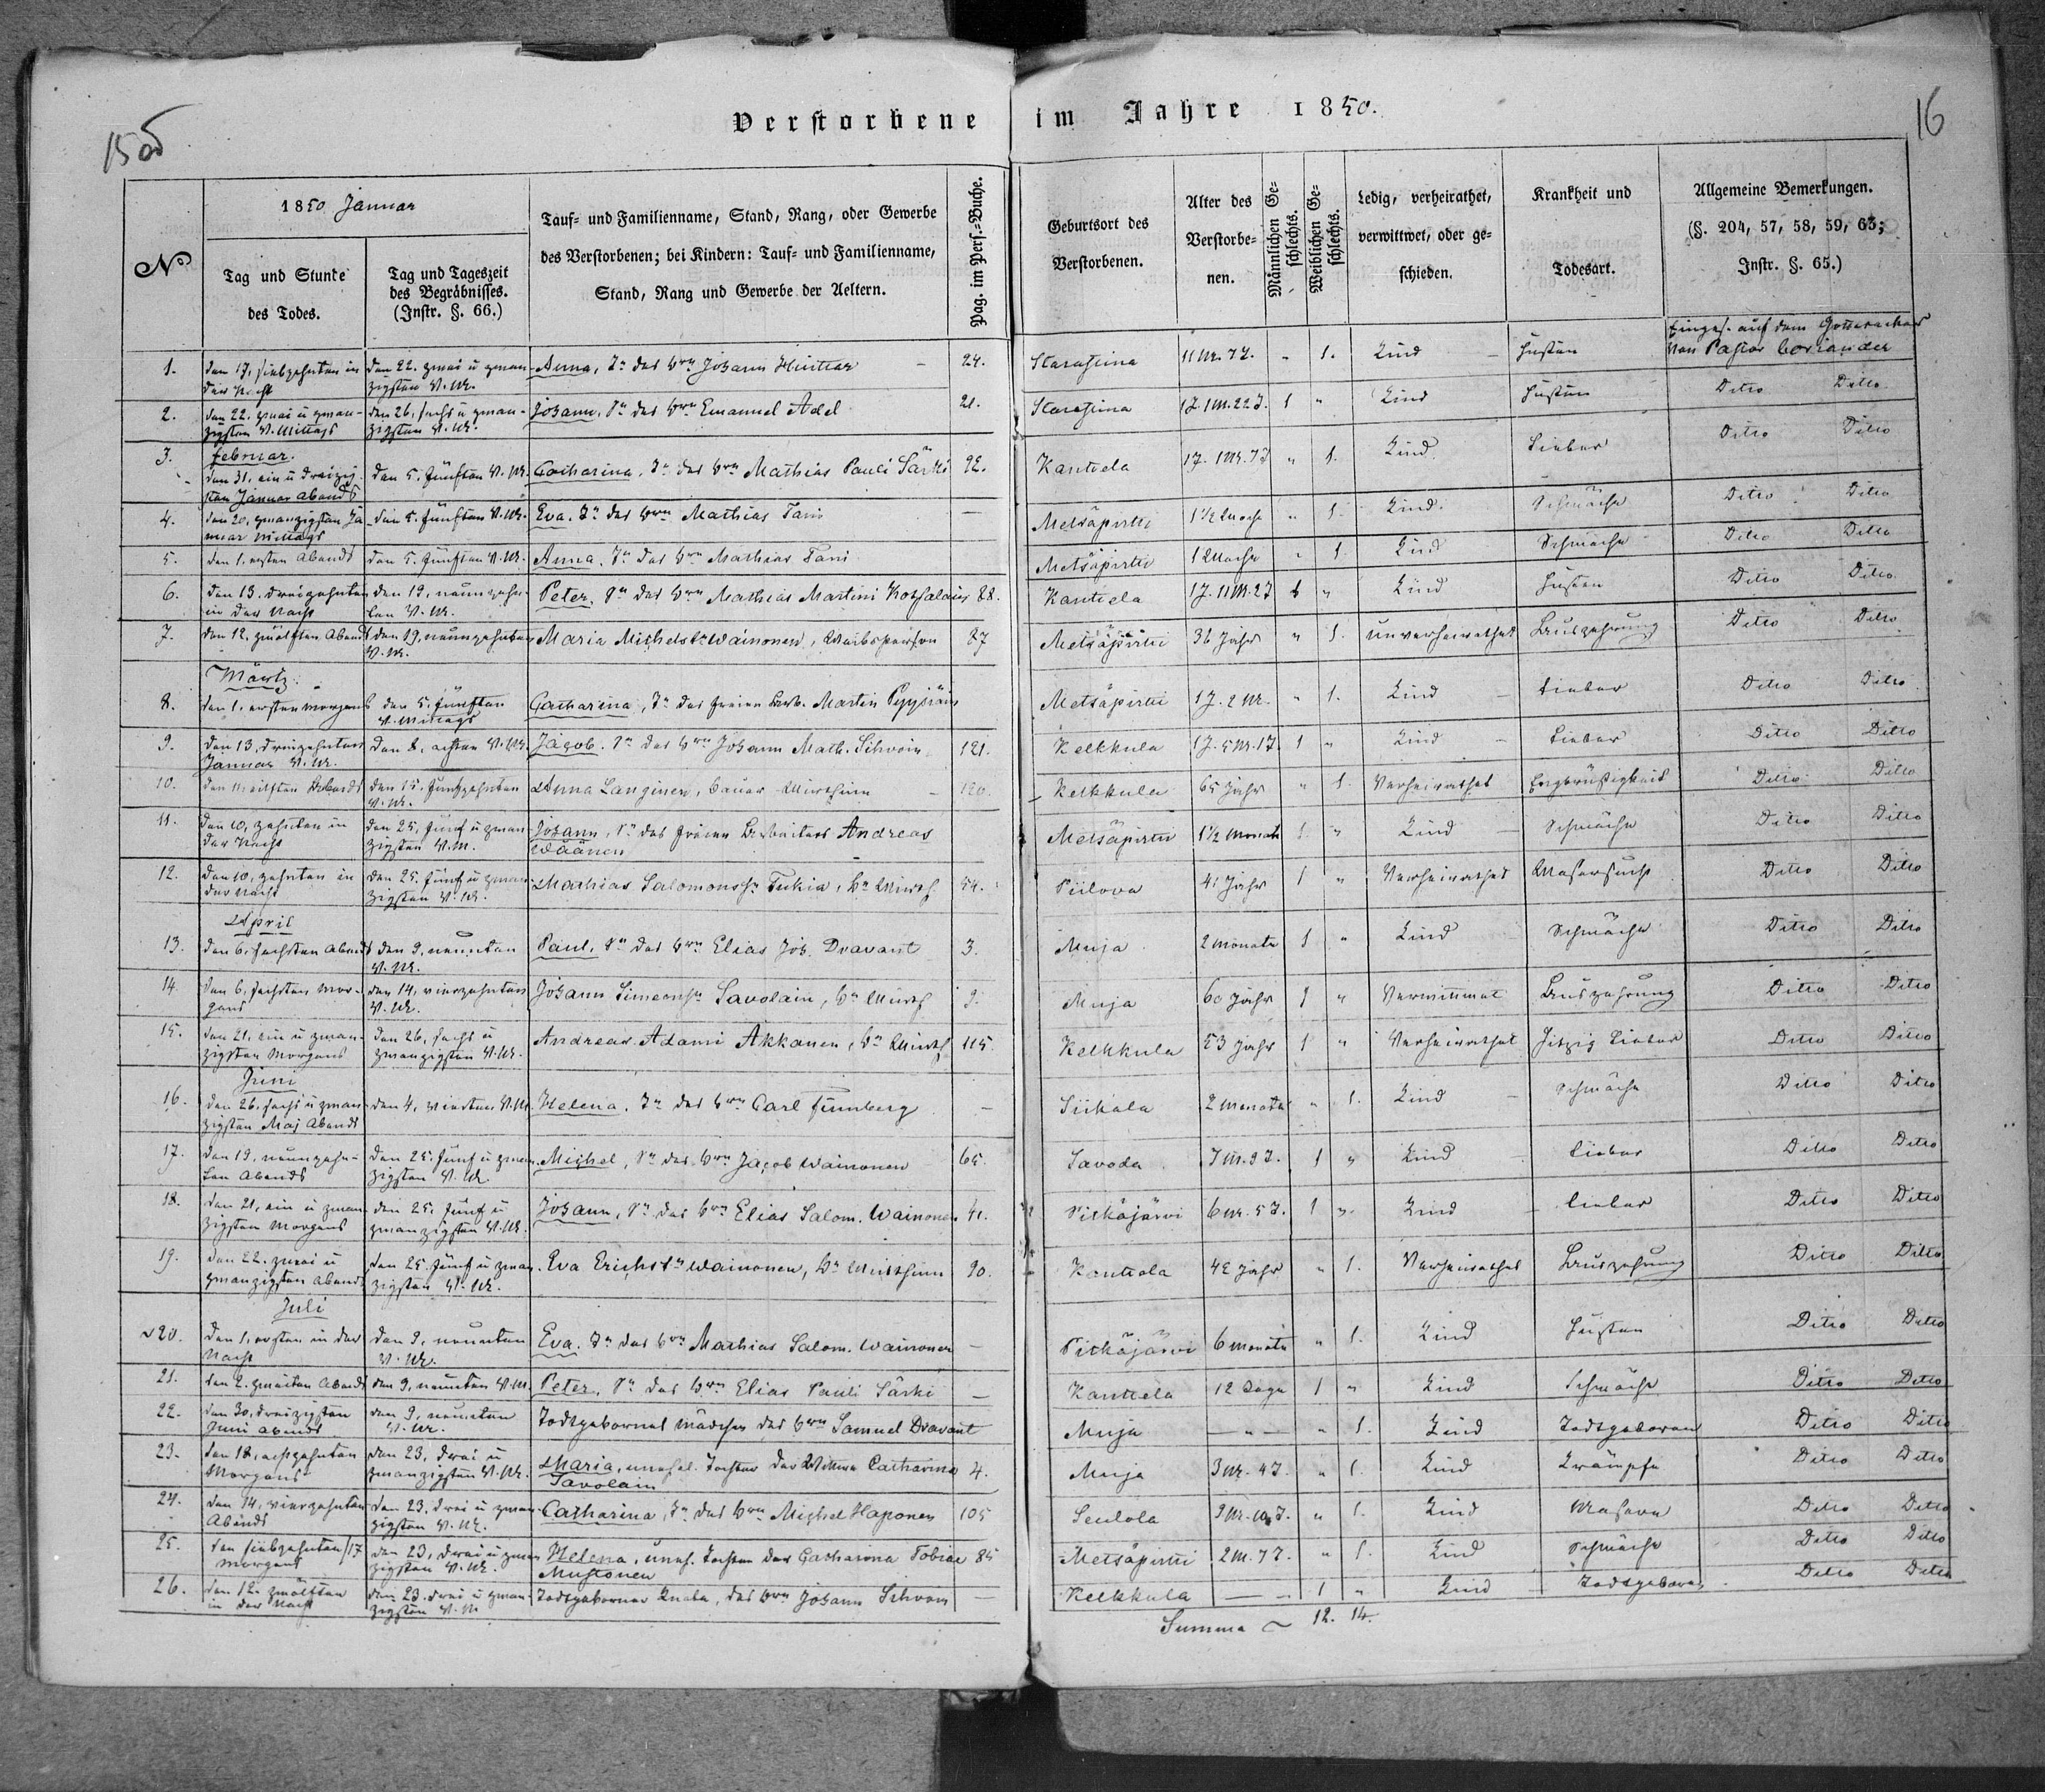 15 об
Verstorbene im Jahre 1850.
16
№
1850 Januar
Tag und Stunde des Todes.
Tag und Tageszeit des Begräbnisses. (Instr. §. 66.)
Tauf- und Familienname, Stand, Rang, oder Gewerbe des Verstorbenen; bei Kindern: Tauf- und Familienname, Stand, Rang und Gewerbe der Aeltern.
Pag. im Pers.-Buche.
Geburtsort des Verstorbenen.
Alter des Verstorbenen.
Männlichen Geschlechts.
Weiblichen Geschlechts.
Ledig, verheirathet, verwittwet, oder geschieden.
Krankheit und Todesart.
Allgemeine Bemerkungen. (§. 204, 57, 58, 59, 63; Instr. §. 65.)
1. den 17, siebzehnten in der Nacht den 22. zwei u zwanzigsten V. M. Anna, Tr des Brn Johann Hinttar 24. Starasina 11 M. 7 T. „ 1. Kind Husten Einges. auf dem Gottesacker von Pastor Coriander
2. den 22. zwei u zwanzigsten V. Mittags den 26, sechs u zwanzigsten V. M. Johann, Sn des Brn Emanuel Adel 21. Starasina 1 J. 1 M. 22 T. 1 „ Kind Husten Ditto Ditto
Februar.
3. den 31, ein u dreizigsten Januar Abends den 5. fünften V. M. Catharina, Tr des Brn Mathias Pauli Särki 92. Kantiela 1 J. 1 M. 7 T „ 1. Kind Fieber Ditto Ditto
4. den 20, zwanzigsten Januar Mittags den 5. fünften V. M. Eva, Tr des Brn Mathias Tani — Metsäpirtti 1 1/2 Woche „ 1. Kind Schwäche Ditto Ditto
5. den 1. ersten Abends den 5. fünften V. M. Anna, Tr des Brn Mathias Tani Metsäpirtti 1 Woche „ 1. Kind Schwäche Ditto Ditto
6. den 13. dreizehnten in der Nacht den 19, neunzehnten V. M. Peter, Sn des Brn Mathias Martini 88. Kantiela 1 J. 11 M. 2 T 1 „ Kind Husten Ditto Ditto
7. den 12. zwölften Abends den 19, neunzehnten V. M. Maria Michelstr Wäinonen, Weibsperson 87 Metsäpirtti 36 Jahr „ 1. unverheirathet Auszehrung Ditto Ditto
Märtz.
8. den 1. ersten Morgens den 5. fünften V. Mittags Catharina, Tr des freien Arb. Martin Metsäpirtti 1 J. 2 M. „ 1. Kind Fieber Ditto Ditto
9. den 13. dreizehnten Januar V. M. den 8, achten V. M. Jacob, Sn des Brn Johann Math. Sihvoin 121. Kelkkula 1 J. 5 M. 1 T. 1 „ Kind Fieber Ditto Ditto
10. Abends den 15. fünfzehnten V. M. Anna Langinen, Bauer Wirthinn 120. Kelkkula 65 Jahr „ 1. Verheirathet Engbrüstigkeit Ditto Ditto
11. den 10, zehnten in der Nacht den 25, fünf u zwanzigsten V. M. Johann, Sn des freien Arbeiters Andreas Wäänen Metsäpirtti 1 1/2 Monate 1. „ Kind Schwäche Ditto Ditto
12. den 10, zehnten in der Nacht den 25. fünf u zwanzigsten V. M. Mathias Salomonssn Tukia, Br Wirth 54. Piilova 41 Jahr 1 „ Verheirathet Wassersucht Ditto Ditto
April
13. den 6, sechsten Abends den 9, neunten V. M. Paul, Sn des Brn Elias Joh. Dravant 3. Muja 2 Monate 1 „ Kind Schwäche Ditto Ditto
14. den 6, sechsten Morgens den 14, vierzehnten V. M. Johann Simeonssn Savolain, Br Wirth 9. Muja 60 Jahr 1 „ Verwittwet Auszehrung Ditto Ditto
15. den 21, ein u zwanzigsten Morgens den 26, sechs u zwanzigsten V. M. Andreas Adami Akkanen, Br Wirth 115. Kelkkula 53 Jahr 1 „ Verheirathet Hitzig Fieber Ditto Ditto
Juni
16. den 26, sechs u zwanzigsten Maj Abends den 4, vierten V. M. Helena, Tr des Brn Carl Finnberg — Siikala 2 Monate „ 1. Kind Schwäche Ditto Ditto
17. den 19, neunzehnten Abends den 25. fünf u zwanzigsten V. M. Michel, Sn des Brn Jacob Wainonen 65. Savoda 7 M. 9 T. 1 „ Kind Fieber Ditto Ditto
18. den 21, ein u zwanzigsten Morgens den 25. fünf u zwanzigsten V. M. Johann, Sn des Brn Elias Salom. Wainonen 41. Pitkäjärvi 6 M. 5 T. 1 „ Kind Fieber Ditto Ditto
19. den 22. zwei u zwanzigsten Abends den 25. fünf u zwanzigsten V. M. Eva Erichstr Wainonen, Br Wirthinn 90. Kantiela 42 Jahr „ 1. Verheirathet Auszehrung Ditto Ditto
Juli
20. den 1. ersten in der Nacht den 9, neunten V. M. Eva, Tr des Brn Mathias Salom. Wainonen — Pitkäjärvi 6 Monate „ 1. Kind Husten Ditto Ditto
21. den 2. zweiten Abends den 9, neunten V. M. Peter, Sn des Brn Elias Pauli Särki — Kantiela 12 Tage 1 „ Kind Schwäche Ditto Ditto
22. den 30, dreizigsten Juni Abends den 9, neunten V. M. Todtgebornes Mädchen des Brn Samuel Dravant Muja — „ — „ 1. Kind Todtgeboren Ditto Ditto
23. den 18, achtzehnten Morgens den 23, drei u zwanzigsten V. M. Maria, unehel. Tochter der Wittwe Catharina Savolain 4. Muja 3 M. 4 T. „ 1. Kind Krämpfe Ditto Ditto
24. den 14, vierzehnten Abends den 23. drei u zwanzigsten V. M. Catharina, Tr des Brn Michel Haponen 105 Seulola „ 1. Kind Masern Ditto Ditto
25. den siebzehnten /17 Morgens den 23, drei u zwanzigsten V. M. Helena, uneh. Tochter der Catharina Tobiae Mustonen 85 Metsäpirtti 2 M. 7 T. „ 1. Kind Schwäche Ditto Ditto
26. den 12. zwölften in der Nacht den 23. drei u zwanzigsten V. M Todtgeborner Knabe, des Brn Johann Sihvoin — Kelkkula — 1 „ Kind Todtgeboren Ditto Ditto
Summa ~ 12. 14.